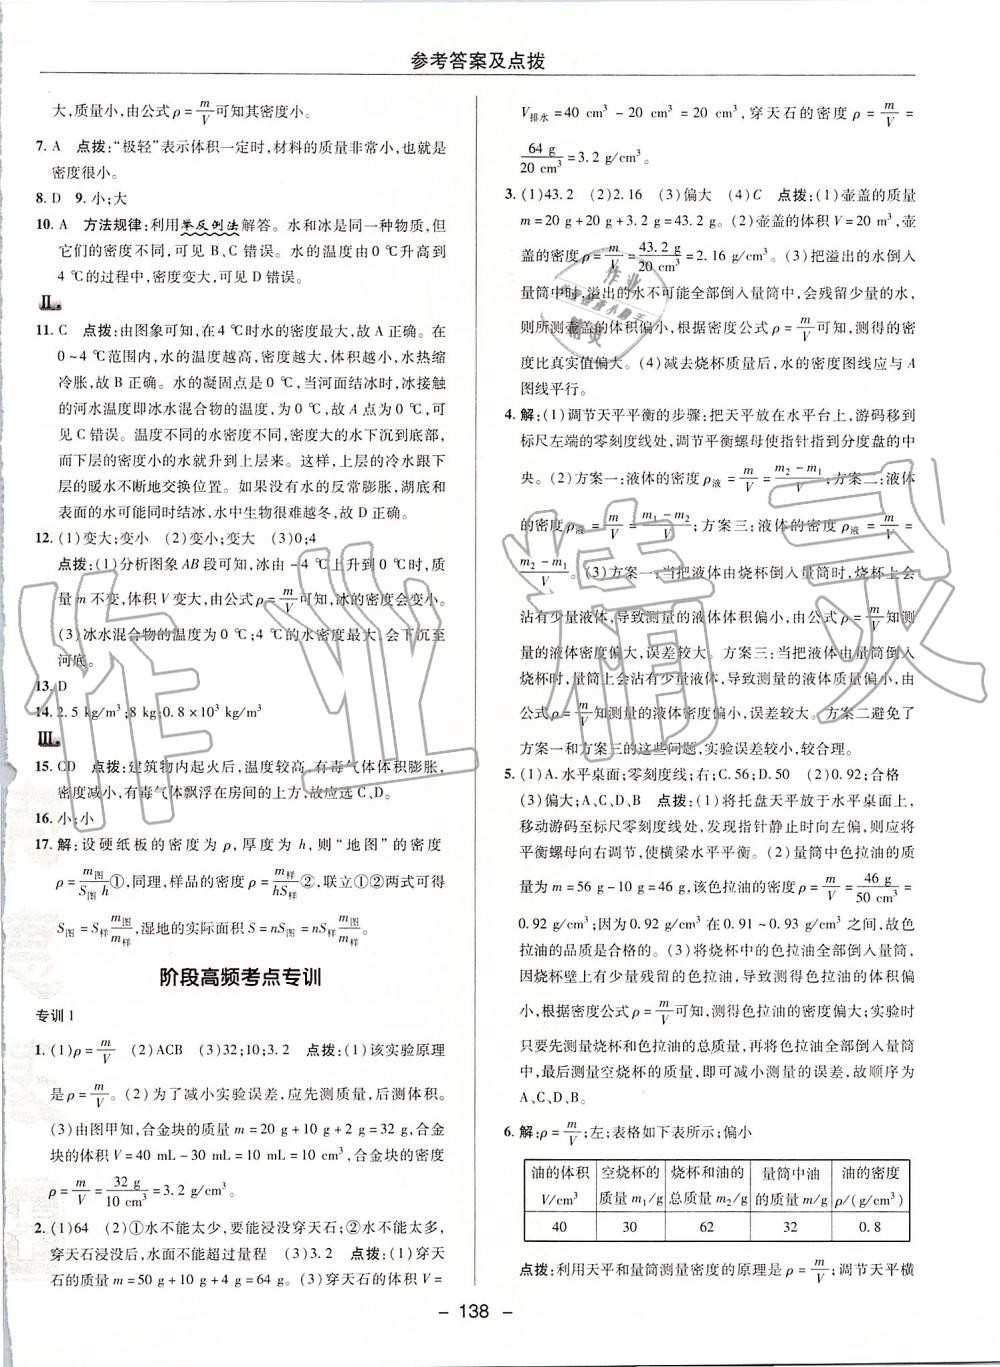 参考答案及点拨
大,质量小,由公式ρ=m/V可知其密度小。
7. A 点拨:“极轻”表示体积一定时,材料的质量非常小,也就是
密度很小。
8. D 9. 小;大
10. A 方法规律:利用举反例法解答。水和冰是同一种物质,但
它们的密度不同,可见B、C错误。水的温度由0 ℃升高到
4 ℃的过程中,密度变大,可见D错误。
Ⅱ.
11. C 点拨:由图象可知,在4 ℃时水的密度最大,故A正确。在
0~4 ℃范围内,水的温度越高,密度越大,体积越小,水热缩
冷胀,故B正确。水的凝固点是0 ℃,当河面结冰时,冰接触
的河水温度即冰水混合物的温度,为0 ℃,故A点为0 ℃,可
见C错误。温度不同的水密度不同,密度大的水下沉到底部,
而下层的密度小的水就升到上层来。这样,上层的冷水跟下
层的暖水不断地交换位置。如果没有水的反常膨胀,湖底和
表面的水可能同时结冰,水中生物很难越冬,故D正确。
12. (1)变大;变小 (2)变小;变大 (3)0;4
点拨:(1)分析图象AB段可知,冰由-4 ℃上升到0 ℃时,质
量m不变,体积V变大,由公式ρ=m/V可知,冰的密度会变小。
(3)冰水混合物的温度为0 ℃;4 ℃的水密度最大,会下沉至
河底。
13. D
14. 2.5 kg/m³;8 kg;0.8×10³ kg/m³
Ⅲ.
15. CD 点拨:建筑物内起火后,温度较高,有毒气体体积膨胀,
密度减小,有毒气体飘浮在房间的上方,故应选C、D。
16. 小;小
17. 解:设硬纸板的密度为ρ,厚度为h,则“地图”的密度
ρ=m图/S图h①,同理,样品的密度ρ=m样/hS样②,联立①②两式可得
S图=S样m图/m样,湿地的实际面积S=nS图=nS样m图/m样。
阶段高频考点专训
专训1
1. (1)ρ=m/V (2)ACB (3)32;10;3.2 点拨:(1)该实验原理
是ρ=m/V。(2)为了减小实验误差,应先测质量,后测体积。
(3)由图甲知,合金块的质量m=20 g+10 g+2 g=32 g,合金
块的体积V=40 mL-30 mL=10 mL=10 cm³,合金块的密度
ρ=m/V=32 g/10 cm³=3.2 g/cm³。
2. (1)64 (2)①水不能太少,要能浸没穿天石;②水不能太多,
穿天石浸没后,水面不能超过量程 (3)3.2 点拨:(1)穿天
石的质量m=50 g+10 g+4 g=64 g。(3)穿天石的体积V=
V排水=40 cm³-20 cm³=20 cm³,穿天石的密度ρ=m/V=
64 g/20 cm³=3.2 g/cm³。
3. (1)43.2 (2)2.16 (3)偏大 (4)C 点拨:(1)壶盖的质量
m=20 g+20 g+3.2 g=43.2 g。(2)壶盖的体积V=20 m³,壶
盖的密度ρ=m/V=43.2 g/20 cm³=2.16 g/cm³。(3)把溢出的水倒入
量筒中时,溢出的水不可能全部倒入量筒中,会残留少量的水,
则所测壶盖的体积偏小,根据密度公式ρ=m/V可知,测得的密
度比真实值偏大。(4)减去烧杯质量后,水的密度图线应与A
图线平行。
4. 解:(1)调节天平平衡的步骤:把天平放在水平台上,游码移到
标尺左端的零刻度线处,调节平衡螺母使指针指到分度盘的中
央。(2)方案一:液体的密度ρ液=m/V=(m₂-m₁)/V;方案二:液体
的密度ρ液=m/V=(m₁-m₂)/V;方案三:液体的密度ρ液=m/V=
(m₂-m₁)/V。(3)方案一:当把液体由烧杯倒入量筒时,烧杯上会
沾有少量液体,导致测量的液体体积偏小,由公式ρ=m/V知测
量的液体密度偏大,误差较大。方案三:当把液体由量筒倒入
烧杯时,量筒上会沾有少量液体,导致测量的液体质量偏小,由
公式ρ=m/V知测量的液体密度偏小,误差较大。方案二避免了
方案一和方案三的这些问题,实验误差较小,较合理。
5. (1)A.水平桌面;零刻度线;右;C.56;D.50 (2)0.92;合格
(3)偏大;A、C、D、B 点拨:(1)将托盘天平放于水平桌面上,
移动游码至标尺零刻度线处,发现指针静止时向左偏,则应将
平衡螺母向右调节,使横梁水平平衡。(2)量筒中色拉油的质
量为m=56 g-10 g=46 g,该色拉油的密度ρ=m/V=46 g/50 cm³=
0.92 g/cm³;因为0.92 g/cm³在0.91~0.93 g/cm³之间,故色
拉油的品质是合格的。(3)将烧杯中的色拉油全部倒入量筒,
因烧杯壁上有少量残留的色拉油,导致测得色拉油的体积偏
小,根据密度公式ρ=m/V,测得色拉油的密度偏大;实验时
只要先测量烧杯和色拉油的总质量,再将色拉油全部倒入量筒
中,最后测量空烧杯的质量,即可减小测量的误差,故顺序为
A、C、D、B。
6. 解:ρ=m/V;左;表格如下表所示;偏小
油的体积V/cm³ 空烧杯的质量m₁/g 烧杯和油的总质量m₂/g 量筒中油的质量m/g 油的密度ρ/(g/cm³)
40 30 62 32 0.8
点拨:利用天平和量筒测量密度的原理是ρ=m/V;调节天平横
- 138 -
作业精灵